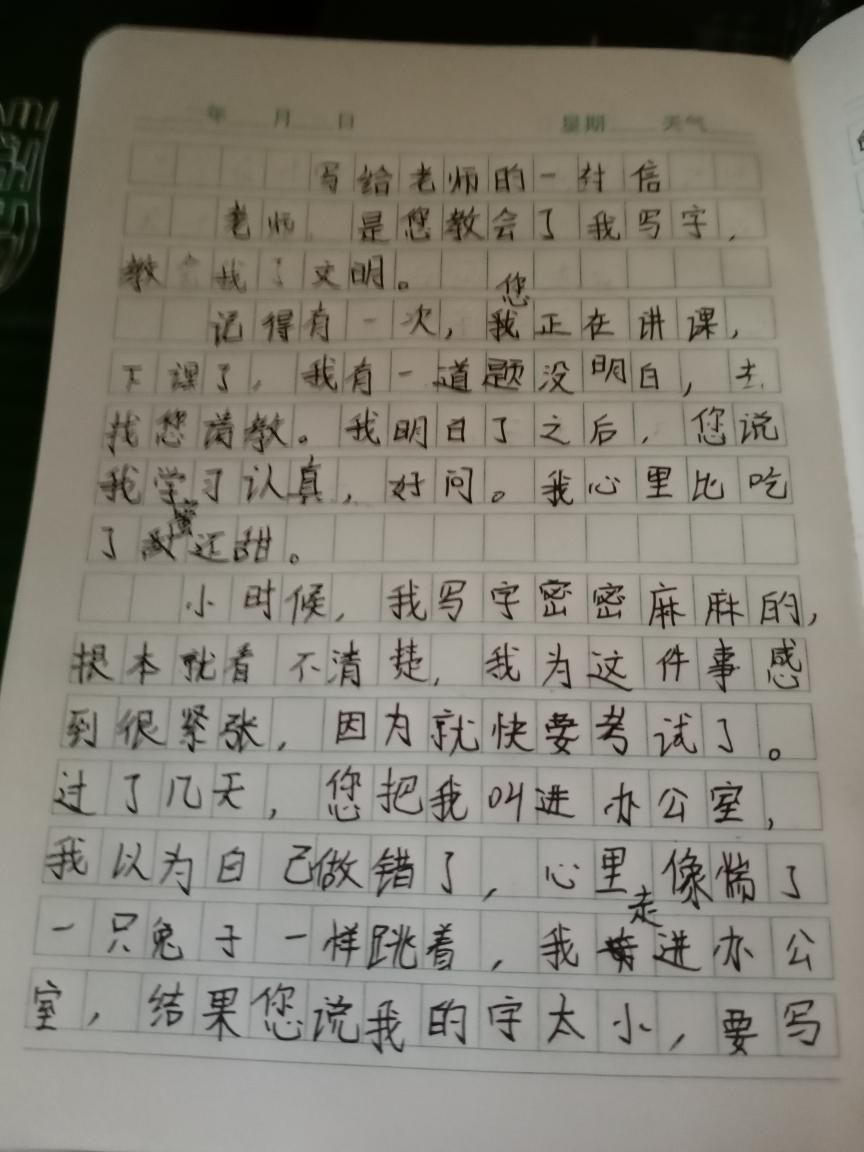 年 月 日 星期 天气
写给老师的一封信
老师 是您教会了我写字,
教会我了文明。
记得有一次,您正在讲课,
下课了,我有一道题没明白,去
找您请教。我明白了之后,您说
我学习认真,好问。我心里比吃
了蜜还甜。
小时候,我写字密密麻麻的,
根本就看不清楚,我为这件事感
到很紧张,因为就快要考试了。
过了几天,您把我叫进办公室,
我以为自己做错了,心里像惴了
一只兔子一样跳着,我走进办公
室,结果您说我的字太小,要写